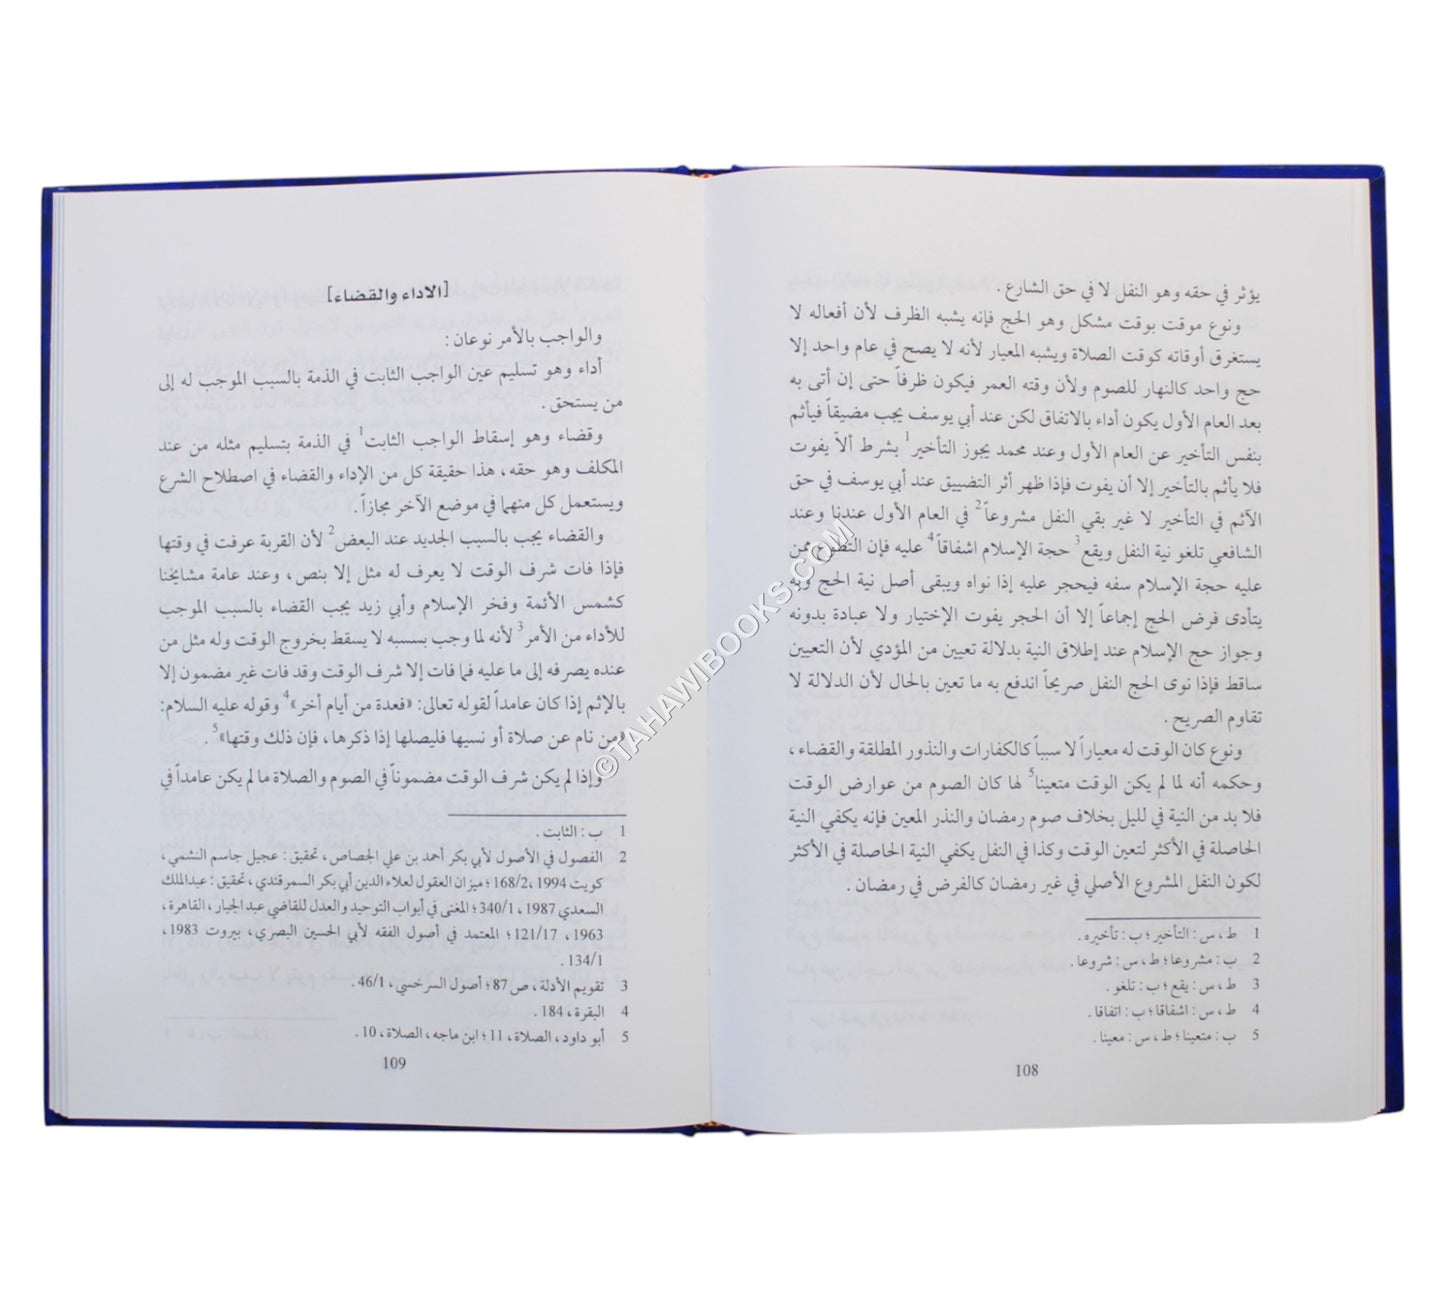 يؤثر في حقه وهو النفل لا في حق الشارع .
ونوع موقت بوقت مشكل وهو الحج فإنه يشبه الظرف لأن أفعاله لا
يستغرق أوقاته كوقت الصلاة ويشبه المعيار لأنه لا يصح في عام واحد إلا
حج واحد كالنهار للصوم ولأن وقته العمر فيكون ظرفاً حتى إن أتى به
بعد العام الأول يكون أداء بالاتفاق لكن عند أبي يوسف يجب مضيقاً فيأثم
بنفس التأخير عن العام الأول وعند محمد يجوز التأخير1 بشرط ألاّ يفوت
فلا يأثم بالتأخير إلا أن يفوت فإذا ظهر أثر التضييق عند أبي يوسف في حق
الآثم في التأخير لا غير بقي النفل مشروعاً2 في العام الأول عندنا وعند
الشافعي تلغو نية النفل ويقع3 حجة الإسلام اشفاقاً4 عليه فإن التطوع ممن
عليه حجة الإسلام سفه فيحجر عليه إذا نواه ويبقى أصل نية الحج وبه
يتأدى فرض الحج إجماعاً إلا أن الحجر يفوت الإختيار ولا عبادة بدونه
وجواز حج الإسلام عند إطلاق النية بدلالة تعيين من المؤدي لأن التعيين
ساقط فإذا نوى الحج النفل صريحاً اندفع به ما تعين بالحال لأن الدلالة لا
تقاوم الصريح .
ونوع كان الوقت له معياراً لا سبباً كالكفارات والنذور المطلقة والقضاء ،
وحكمه أنه لما لم يكن الوقت متعينا5 لها كان الصوم من عوارض الوقت
فلا بد من النية في لليل بخلاف صوم رمضان والنذر المعين فإنه يكفي النية
الحاصلة في الأكثر لتعين الوقت وكذا في النفل يكفي النية الحاصلة في الأكثر
لكون النفل المشروع الأصلي في غير رمضان كالفرض في رمضان .
1 ط ، س : التأخير ؛ ب : تأخيره .
2 ب : مشروعا ؛ ط ، س : شروعا .
3 ط ، س : يقع ؛ ب : تلغو .
4 ط ، س : اشفاقا ؛ ب : اتفاقا .
5 ب : متعينا ؛ ط ، س : معينا .
108
[الاداء والقضاء]
والواجب بالأمر نوعان :
أداء وهو تسليم عين الواجب الثابت في الذمة بالسبب الموجب له إلى
من يستحق .
وقضاء وهو إسقاط الواجب الثابت1 في الذمة بتسليم مثله من عند
المكلف وهو حقه ، هذا حقيقة كل من الإداء والقضاء في اصطلاح الشرع
ويستعمل كل منهما في موضع الآخر مجازاً .
والقضاء يجب بالسبب الجديد عند البعض2 لأن القربة عرفت في وقتها
فإذا فات شرف الوقت لا يعرف له مثل إلا بنص ، وعند عامة مشايخنا
كشمس الأئمة وفخر الإسلام وأبي زيد يجب القضاء بالسبب الموجب
للأداء من الأمر3 لأنه لما وجب بسببه لا يسقط بخروج الوقت وله مثل من
عنده يصرفه إلى ما عليه فما فات إلا شرف الوقت وقد فات غير مضمون إلا
بالإثم إذا كان عامداً لقوله تعالى: «فعدة من أيام أخر»4 وقوله عليه السلام:
«من نام عن صلاة أو نسيها فليصلها إذا ذكرها ، فإن ذلك وقتها»5 .
وإذا لم يكن شرف الوقت مضموناً في الصوم والصلاة ما لم يكن عامداً في
1 ب : الثابت .
2 الفصول في الأصول لأبي بكر أحمد بن علي الجصاص ، تحقيق : عجيل جاسم النشمي ،
كويت 1994 ،168/2 ؛ ميزان العقول لعلاء الدين أبي بكر السمرقندي ، تحقيق : عبدالملك
السعدي 1987 ، 340/1 ؛ المغنى في أبواب التوحيد والعدل للقاضي عبد الجبار ، القاهرة ،
1963 ، 121/17 ؛ المعتمد في أصول الفقه لأبي الحسين البصري ، بيروت 1983 ،
134/1 .
3 تقويم الأدلة ، ص 87 ؛ أصول السرخسي ، 46/1 .
4 البقرة ، 184 .
5 أبو داود ، الصلاة ، 11 ؛ ابن ماجه ، الصلاة ، 10 .
109
©TAHAWIBOOKS.COM